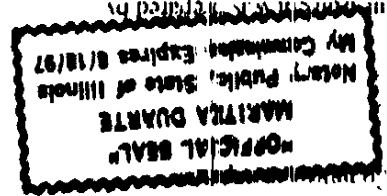 "OFFICIAL SEAL"
MARITZA DUARTE
Notary Public, State of Illinois
My Commission Expires 8/18/97